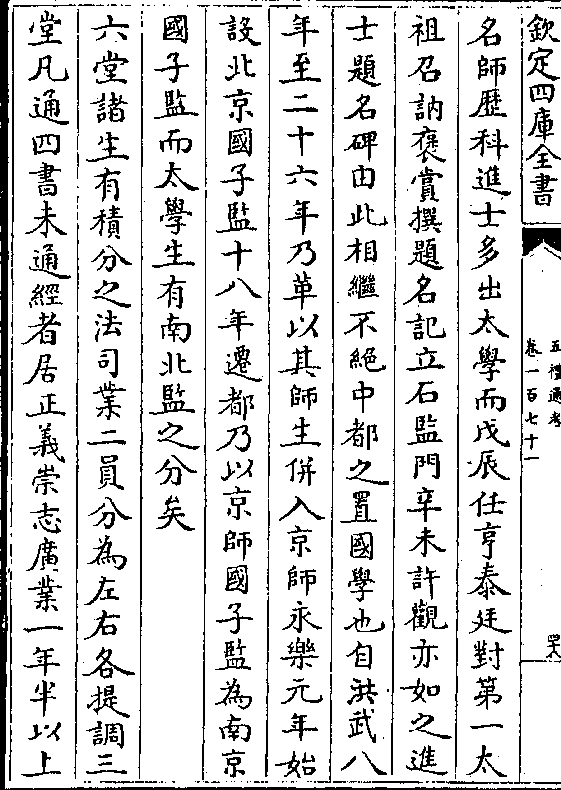 欽定四庫全書
五禮通考
卷一百七十一
四六
名師歷科進士多出太學而戊辰任亨泰廷對第一太
祖召訥褒賞撰題名記立石監門辛未許觀亦如之進
士題名碑由此相繼不絕中都之置國學也自洪武八
年至二十六年乃革以其師生併入京師永樂元年始
設北京國子監十八年遷都乃以京師國子監為南京
國子監而太學生有南北監之分矣
六堂諸生有積分之法司業二員分為左右各提調三
堂凡通四書未通經者居正義崇志廣業一年半以上